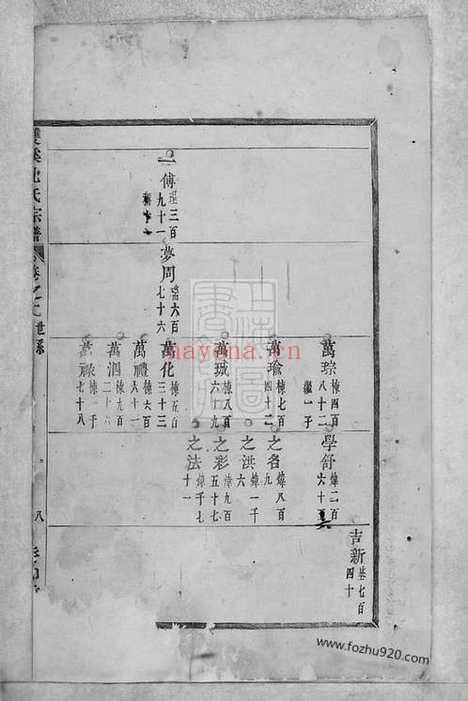 吉新 基七百四十
萬琮 棟四百八十二 繼一子
學舒 煒二百六十五
萬瑜 棟七百四十二
之名 煒八百九
之洪 煒一千六
萬珹 棟八百六十九
之彩 煒九百五十七
之法 煒千七十一
一傳 三百九十一
夢周 六百七十六
萬化 棟五百三十三
萬禮 棟六百六十一
萬泗 棟九百二十六
棟千七十八
氏宗譜
八
上海圖書館藏書
hayona.cn
www.fozhu920.com